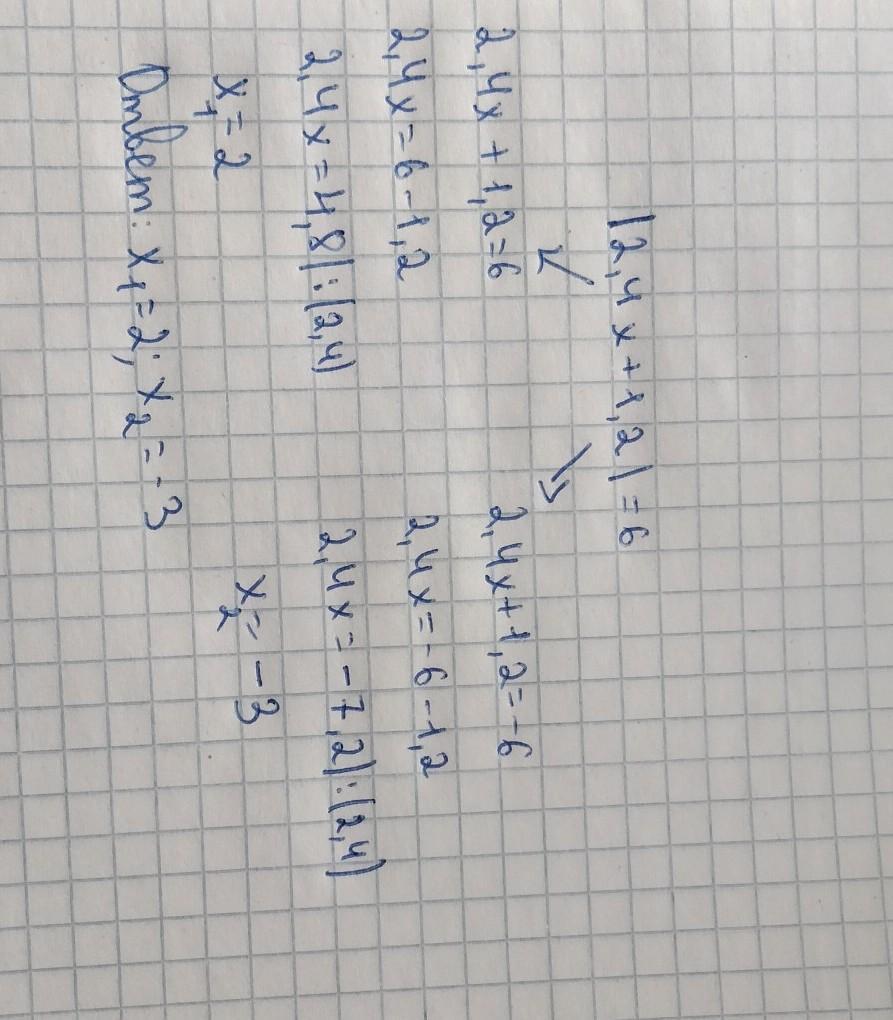 |2,4x+1,2|=6
↙ ↘
2,4x+1,2=6 2,4x+1,2=-6
2,4x=6-1,2 2,4x=-6-1,2
2,4x=4,8|:(2,4) 2,4x=-7,2|:(2,4)
x₁=2 x₂=-3
Ответ: x₁=2; x₂=-3